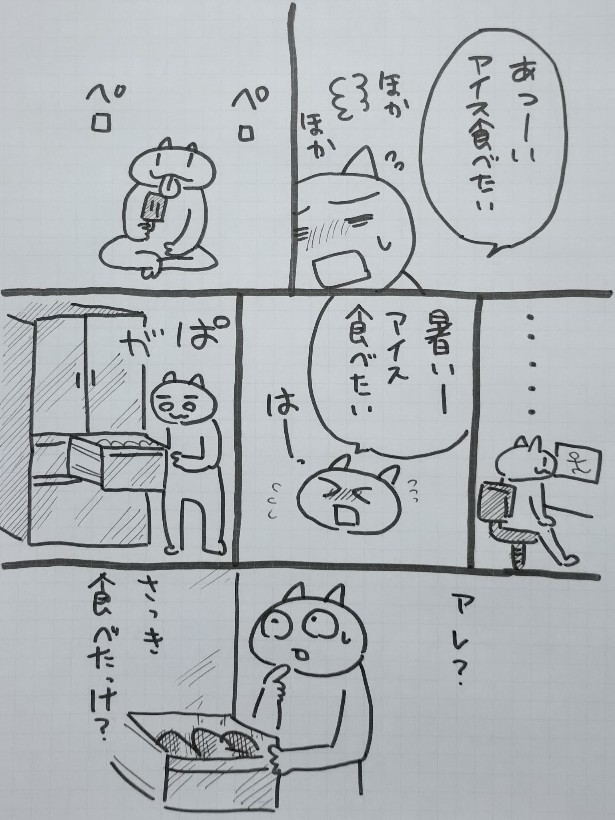 あつーい
アイス食べたい
ほか
ほか
ペロ
ペロ
・・・・・
暑いー
アイス
食べたい
はーっ
ぱ
が
アレ?
さっき
食べたっけ?